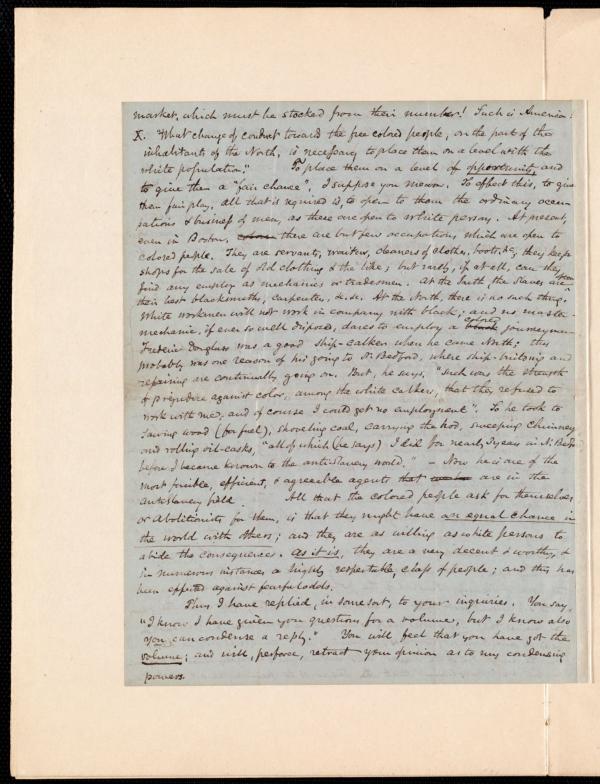 market, which must be stocked from their number! Such is America!
X. "What change of conduct toward the free colored people, on the part of the
inhabitants of the North, is necessary to place them on a level with the
white population." To place them on a level of opportunity and
to give them a "fair chance", I suppose you mean. To effect this, to give
them fair play, all that is required is, to open to them the ordinary occu-
pations & business of men, as these are open to white persons. At present,
even in Boston, there are but few occupations, which are open to
colored people. They are servants, waiters, cleaners of clothes, boots, &c, they keep
shops for the sale of old clothing & the like; but rarely, if at all, can they
find any employ as mechanics or tradesmen. At the South, the slaves are often
their best blacksmiths, carpenters, &c. &c. At the North, there is no such thing.
White workmen will not work in company with black; and no master-
mechanic, if ever so well disposed, dares to employ a black colored journeyman.
Frederic Douglass was a good ship-calker when he came North; this
probably was one reason of his going to N. Bedford, where ship-building and
repairing are continually going on. But, he says, "such was the strength
of prejudice against color, among the white calkers, that they refused to
work with me, and of course I could get no employment". So he took to
sawing wood (for fuel), shoveling coal, carrying the hod, sweeping chimneys
and rolling oil-casks, "all of which (he says) I did for nearly 3 years in N. Bedford
before I became known to the anti-slavery world." – Now he is one of the
most forcible, efficient, & agreeable agents that are in the
antislavery field. All that the colored people ask for themselves,
or Abolitionists for them, is that they might have an equal chance in
the world with others; and they are as willing as white persons to
abide the consequences. As it is, they are a very decent & worthy, &
in numerous instances a highly respectable, class of people; and this has
been effected against fearful odds.
Thus I have replied, in some sort, to your inquiries. You say,
"I know I have given you questions for a volume, but I know also
you can condense a reply." You will feel that you have got the
volume; and will, perforce, retract your opinion as to my condensing
powers.